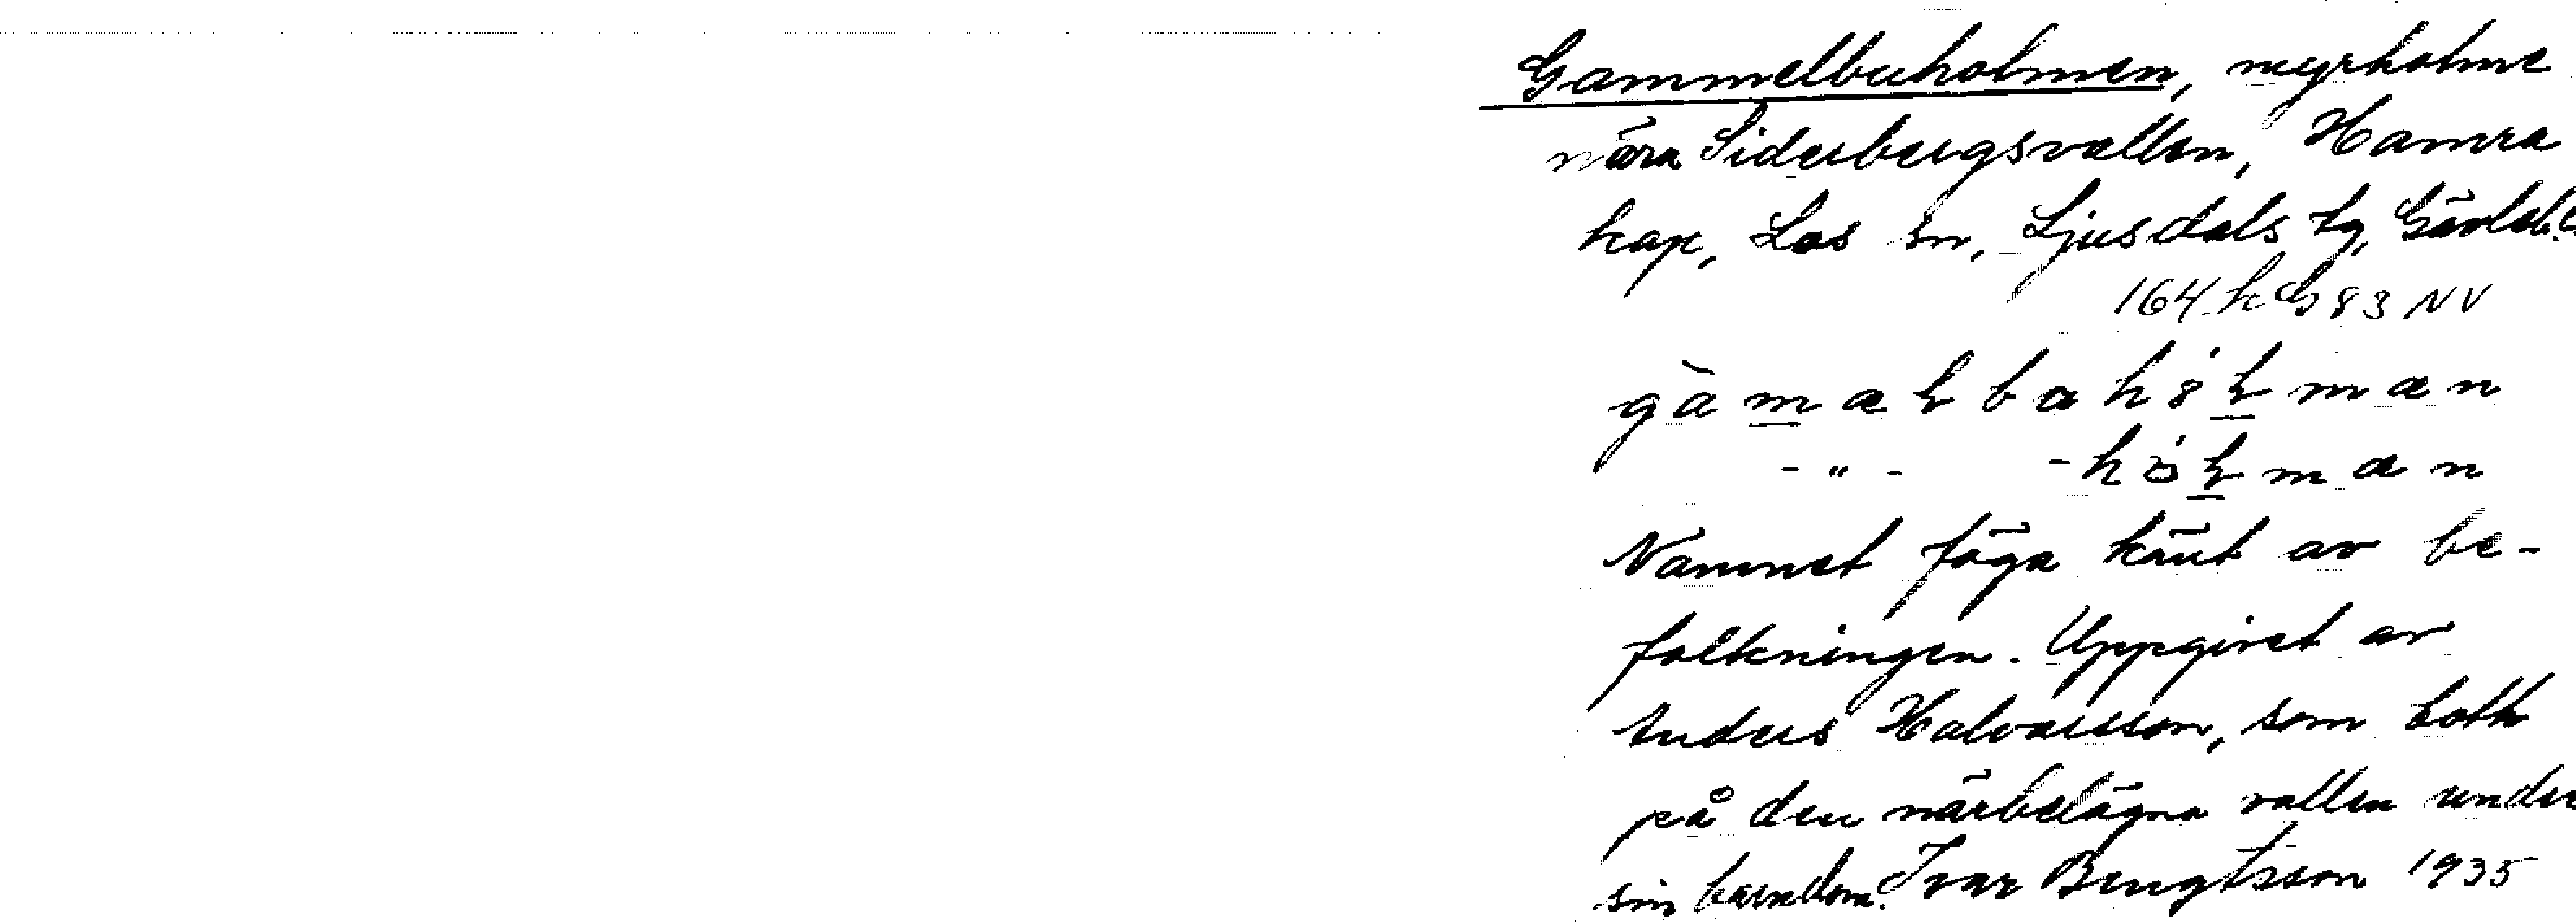 Gammelbuholmen, myrholme
nära Siderbergsvallen, Hamra
kap, Los sn, Ljusdals tg, Gävleb. l
164 h G 83 NV
gàmaḷbahòḷman
- " - -hòḷman
Namnet föga känt av be-
folkningen. Uppgivet av
Anders Halvarsson, som bott
på den närbelägna vallen under
sin barndom. Ivar Bengtsson 1935